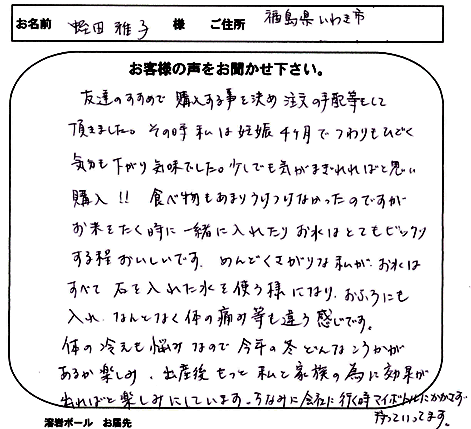 お名前 蛭田 雅子 様 ご住所 福島県いわき市
お客様の声をお聞かせ下さい。
友達のすすめで購入する事を決め注文の手配等をして
頂きました。その時私は妊娠4ヶ月でつわりもひどく
気分も下がり気味でした。少しでも気がまぎれればと思い
購入!! 食べ物もあまりうけつけなかったのですが
お米をたく時に一緒に入れたりお水はとてもビックリ
する程おいしいです。めんどくさがりな私がお水は
すべて石を入れた水を使う様になり、おふろにも
入れ、なんとなく体の痛み等も違う感じです。
体の冷えも悩みなので今年の冬どんなこうかが
あるか楽しみ、出産後もっと私と家族の為に効果が
出ればと楽しみにしています。ちなみに会社に行く時マイボトルにかかさず
持っていってます。
溶岩ボール お届先